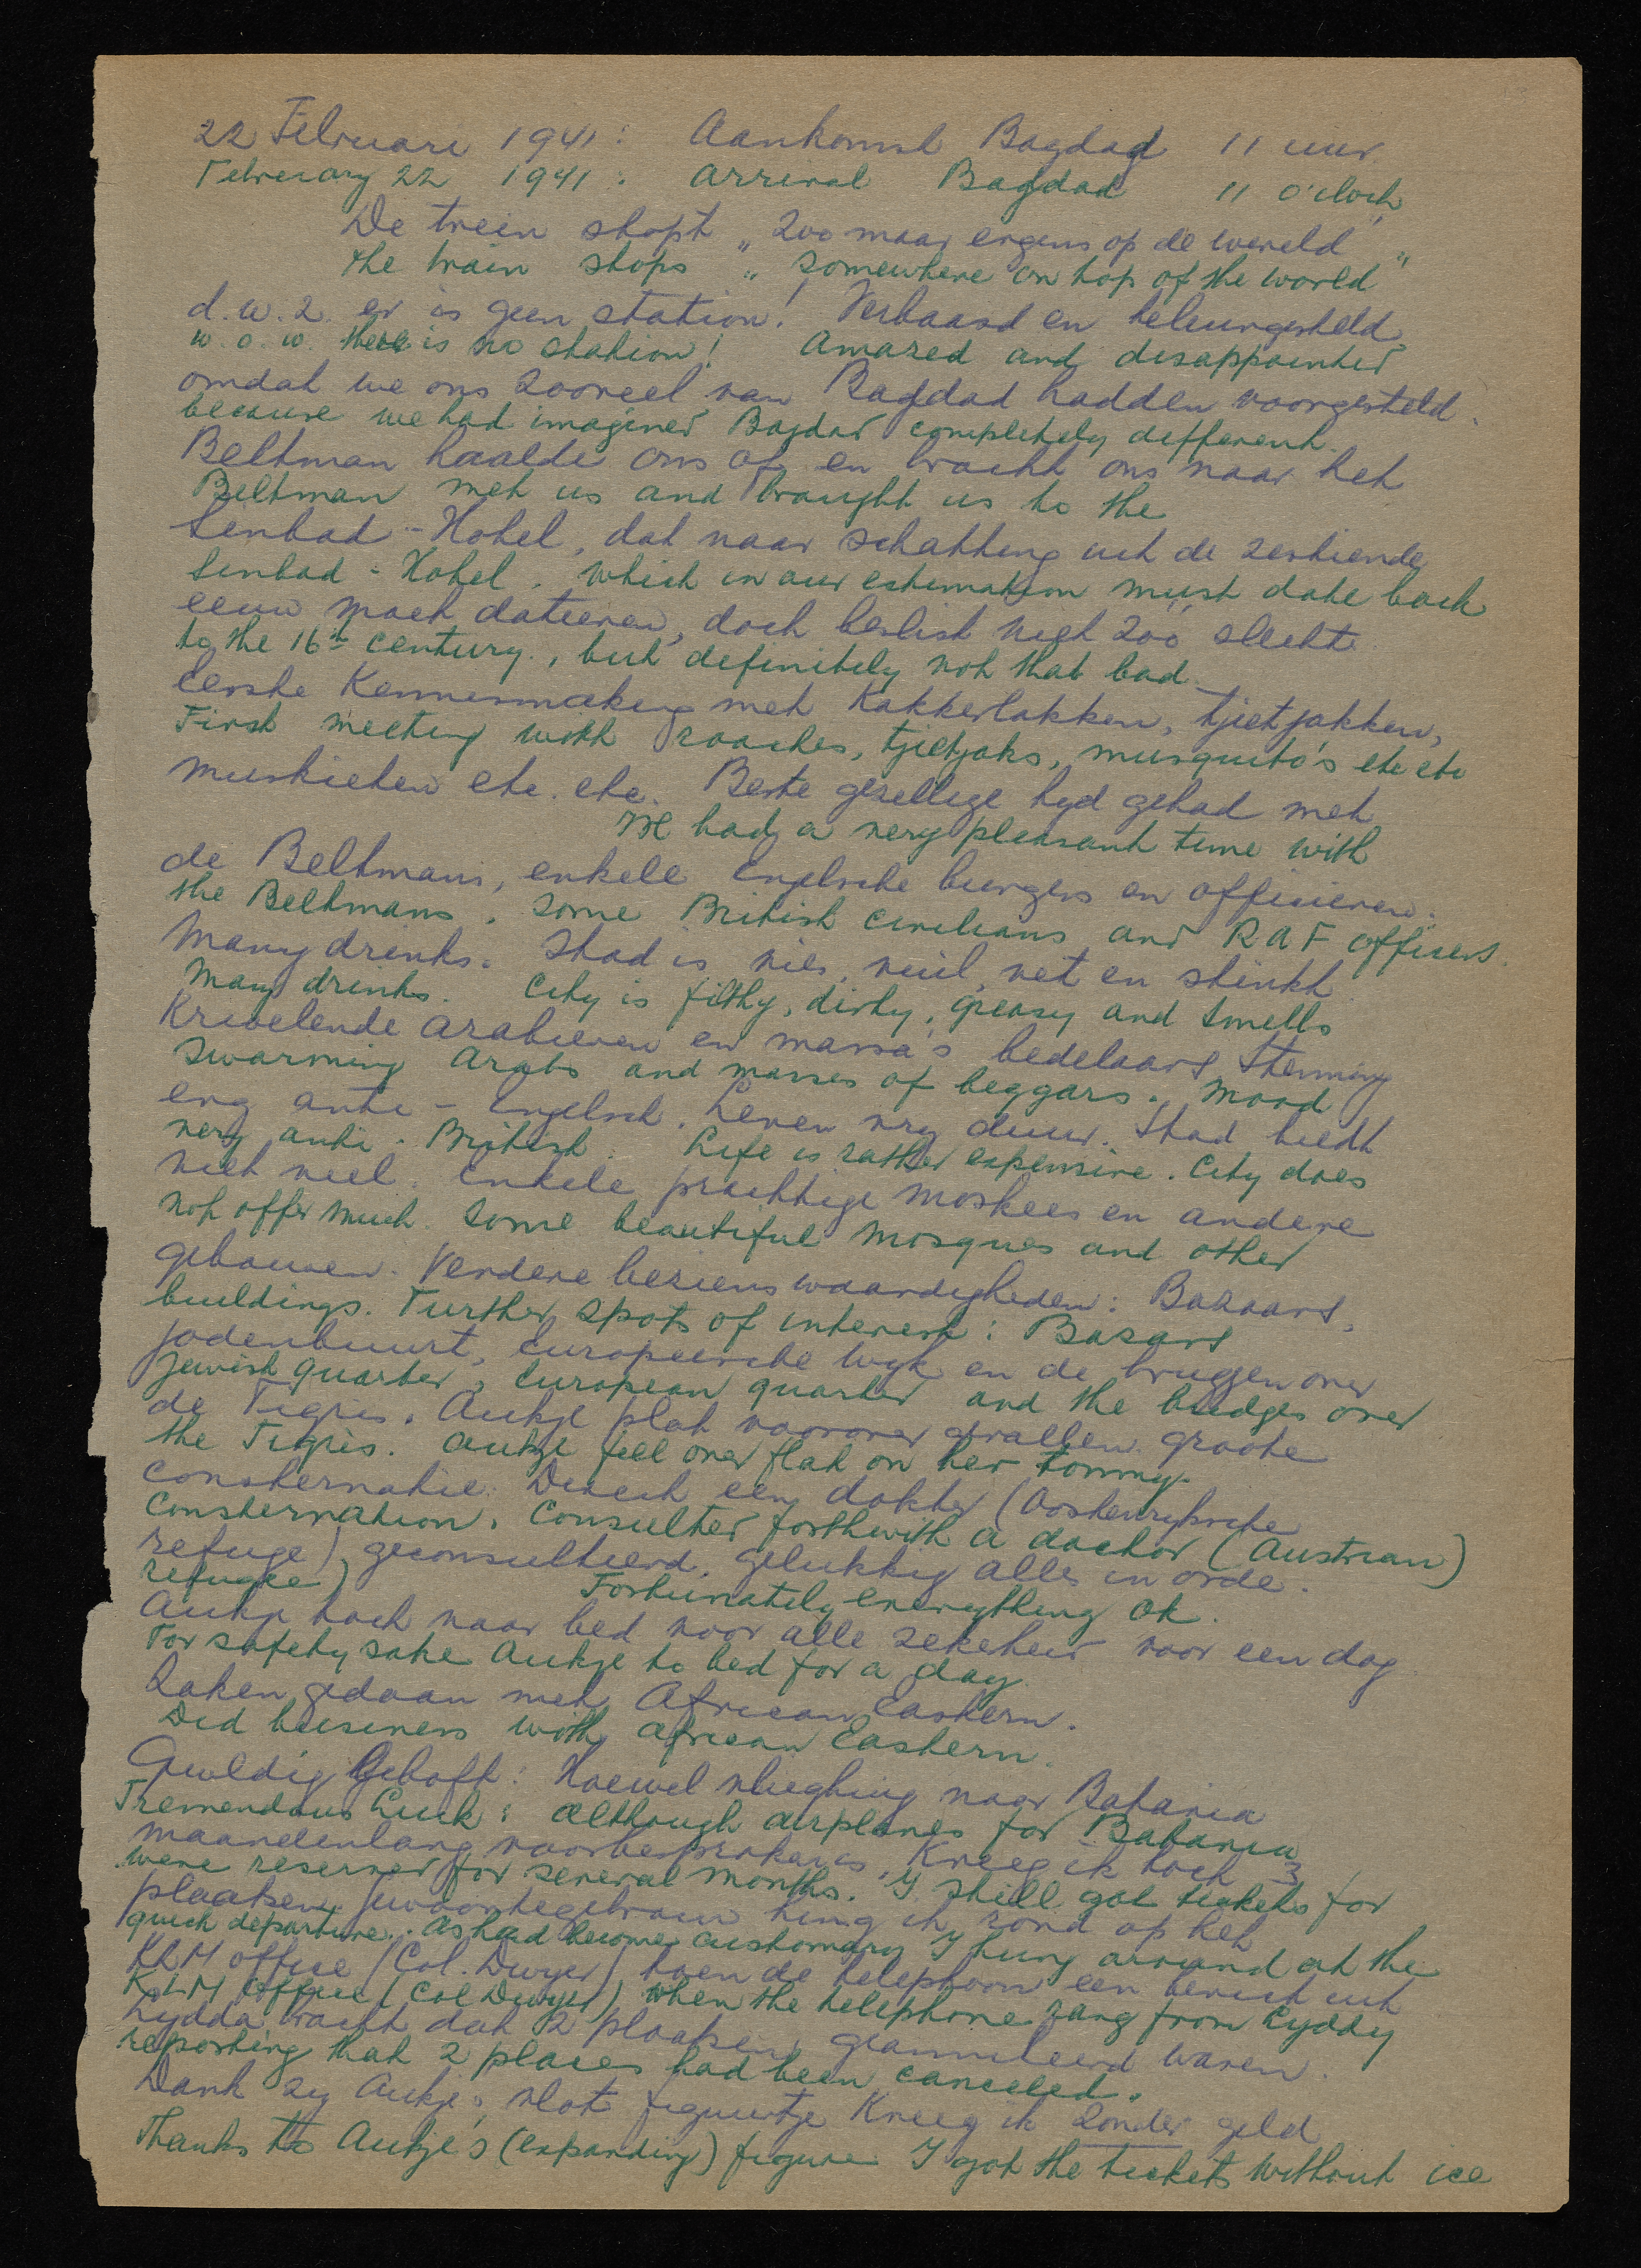 22 Februari 1941: Aankomst Bagdad 11 uur.
February 22 1941: Arrival Bagdad 11 o'clock
De trein stopt „zoo maar ergens op de wereld"
the train stops „somewhere on top of the world"
d.w.z. er is geen station! Verbaasd en teleurgesteld
w.o.w. there is no station! Amazed and disappointed
omdat we ons zooveel van Bagdad hadden voorgesteld.
because we had imagined Bagdad completely different.
Beltman haalde ons af en bracht ons naar het
Beltman met us and brought us to the
Sinbad-Hotel, dat naar schatting uit de zestiende
Sinbad-Hotel, which in our estimation must date back
eeuw moet dateeren, doch beslist niet zóó slecht.
to the 16th century, but definitely not that bad.
Eerste Kennismaking met Kakkerlakken, tjietjakken,
First meeting with roaches, tjietjaks, musquito's etc etc
muskieten etc. etc. Beste gezellige tyd gehad met
We had a very pleasant time with
de Beltmans, enkele Engelsche burgers en officieren.
the Beltmans, some British civilians and RAF officers.
Many drinks. Stad is vies, vuil, vet en stinkt.
Many drinks. City is filthy, dirty, greasy and smells
Krioelende Arabieren en massa's bedelaars Stemming
Swarming Arabs and masses of beggars. Mood
erg anti-Engelsch. Leven vry duur. Stad biedt
very anti-British. Life is rather expensive. City does
niet veel. Enkele prachtige moskees en andere
not offer much. Some beautiful mosques and other
gebouwen. Verdere bezienswaardigheden: Bazaars,
buildings. Further spots of interest: Bazars
jodenbuurt, Europeesche wyk en de bruggen over
Jewish quarter, European quarter and the bridges over
de Tigris. Aukje plat voorover gevallen. groote
the Tigris. Aukje fell over flat on her tommy.
consternatie. Direct een dokter (Oostenryksche
Consternation. Consulted forthwith a doctor (Austrian)
refuge) geconsulteerd, gelukkig alles in orde.
refugee) Fortunately everything ok.
Aukje toch naar bed voor alle zekerheid voor een dag
For safety sake Aukje to bed for a day
Zaken gedaan met African Eastern.
Did business with African Eastern.
Geweldig geboft: Hoewel vliegtuig naar Batavia
Tremendous Luck: Although airplanes for Batavia
maandenlang voorbesproken is, Kreeg ik toch 3
were reserved for several months. I still got tickets for
plaatsen. Gewoontegetrouw hing ik rond op het
quick departure. As had become customary I hung around at the
KLM office (Col. Dwyer) toen de telephoon een bericht uit
KLM office (Col Dwyer) when the telephone rang from Lydda
Lydda bracht dat 2 plaatsen geannuleerd waren.
reporting that 2 places had been canceled.
Dank zy Aukje's vlot figuurtje Kreeg ik zonder geld
Thanks to Aukje's (expanding) figure I got the tickets without ice